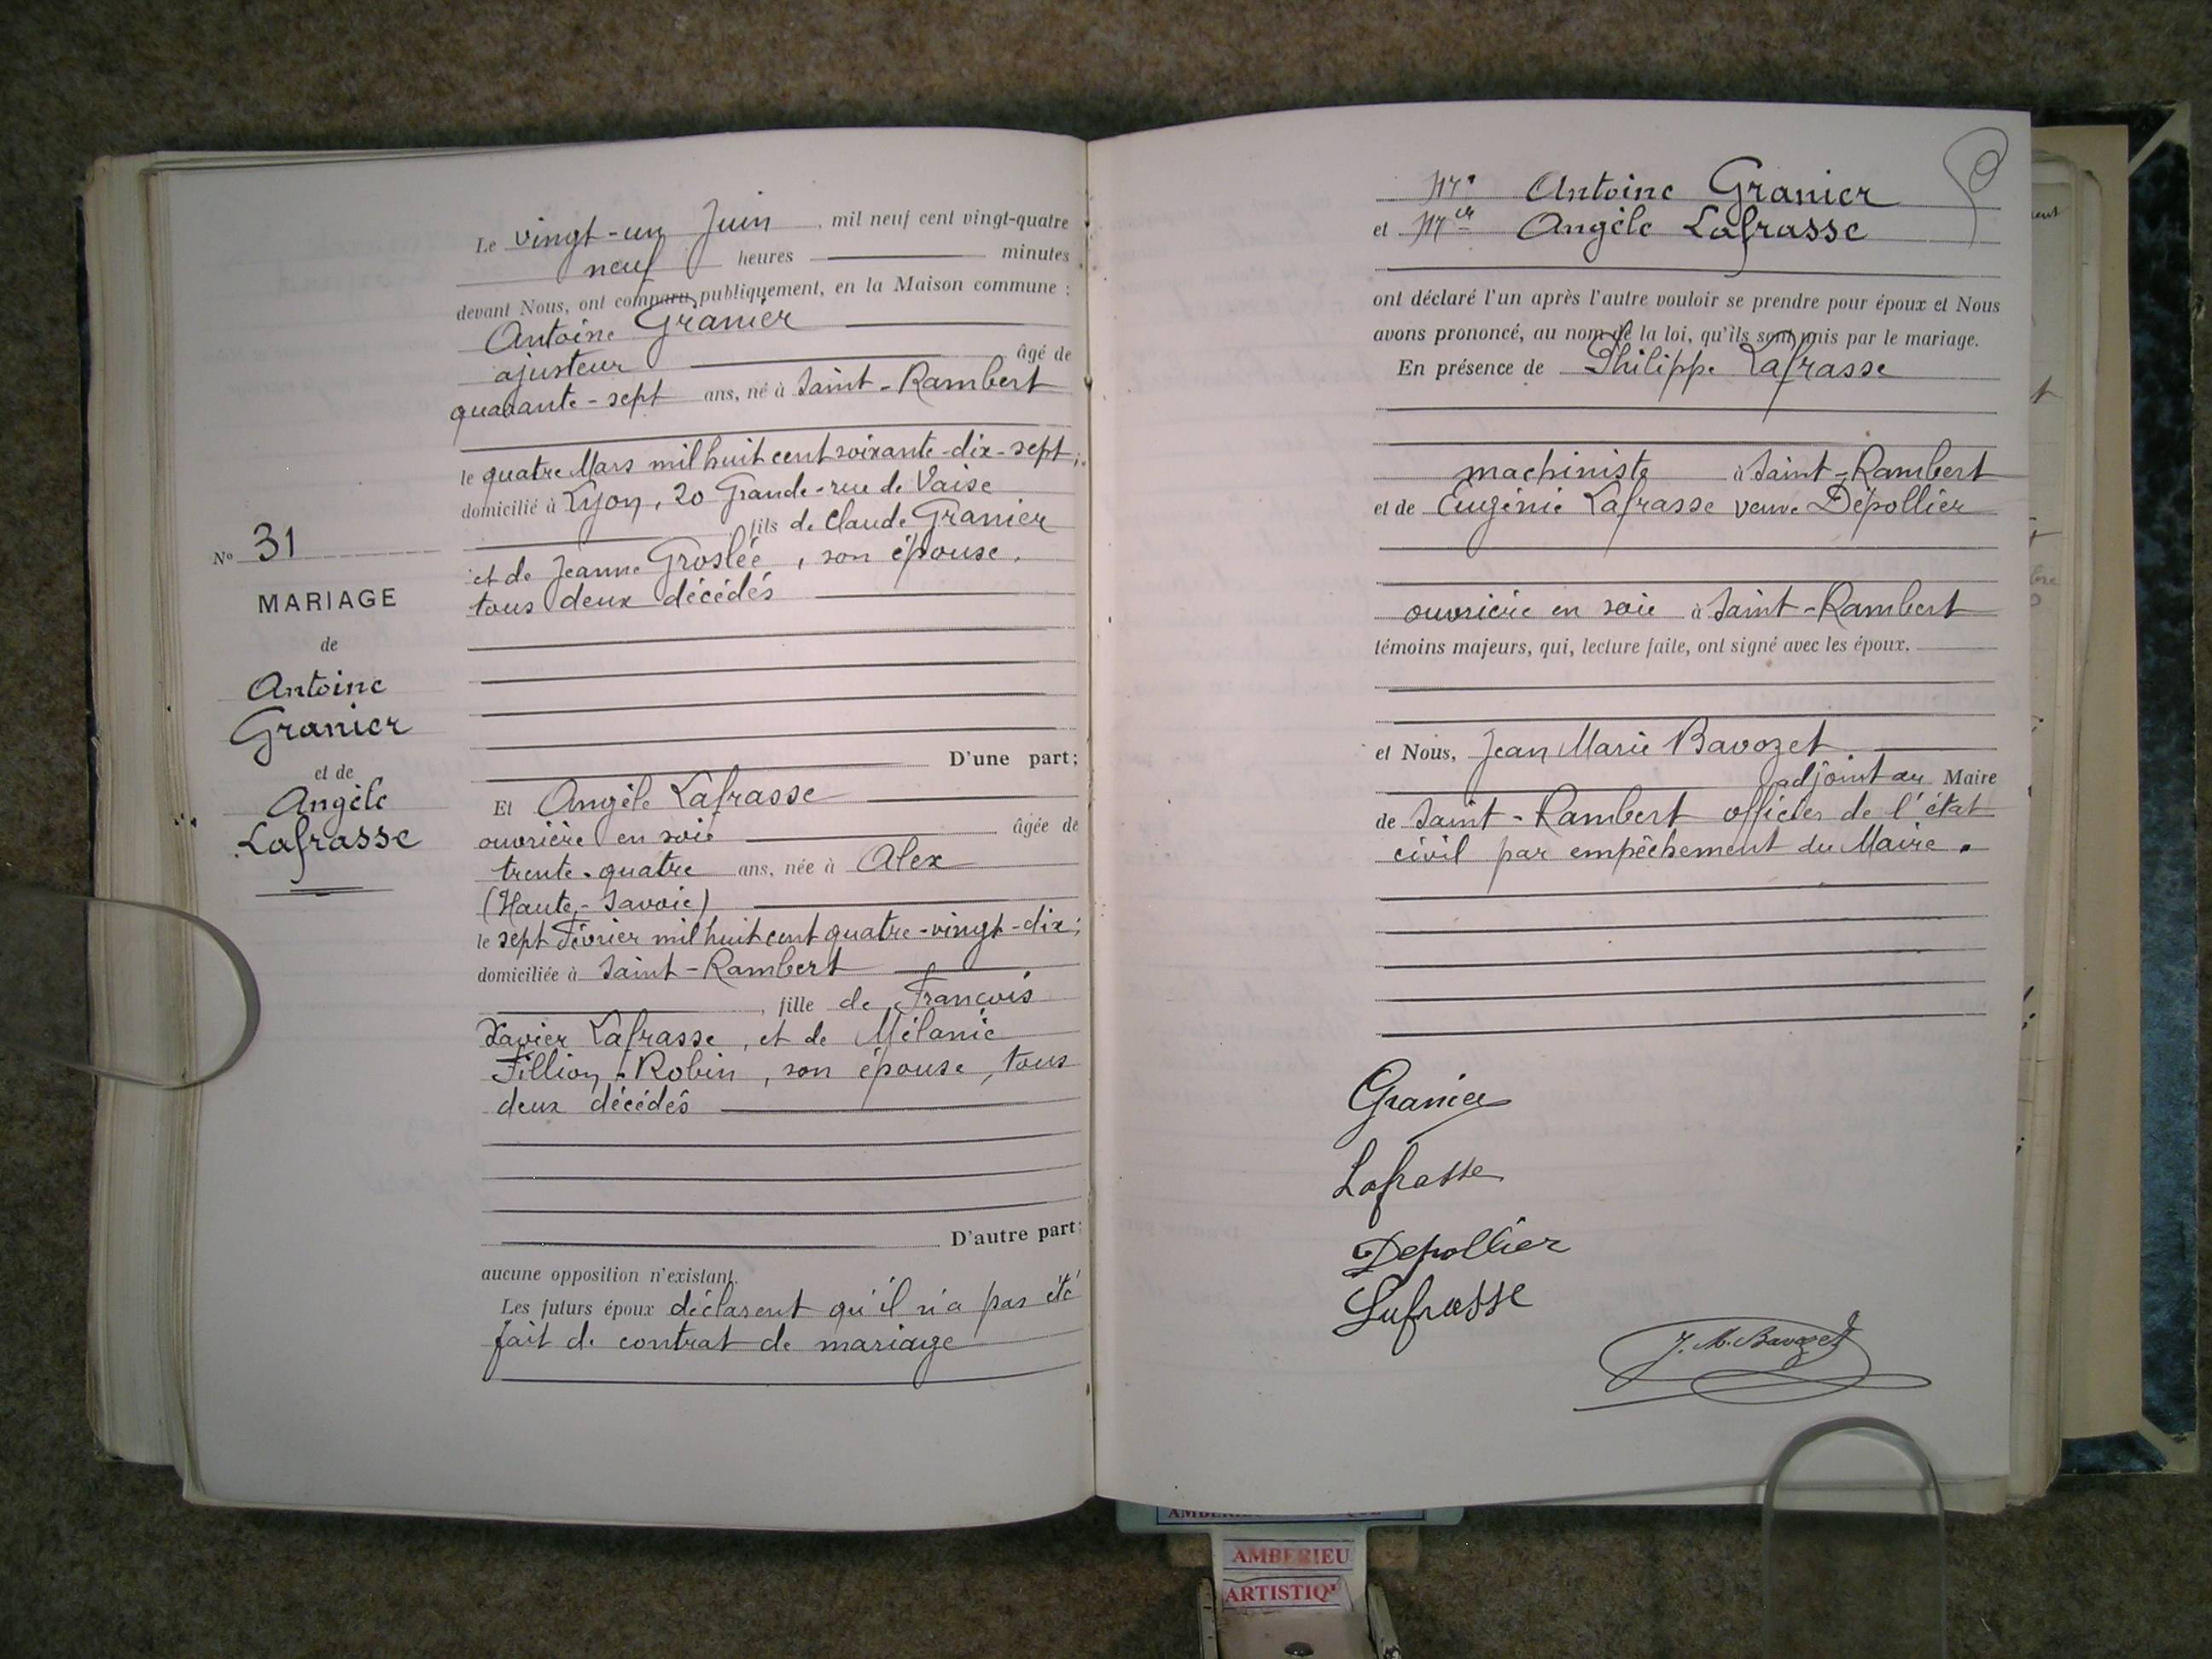 Le vingt-un Juin, mil neuf cent vingt-quatre
neuf heures minutes
devant Nous, ont comparu publiquement, en la Maison commune :
Antoine Granier
ajusteur âgé de
quarante-sept ans, né à Saint-Rambert
le quatre Mars mil huit cent soixante-dix-sept;
domicilié à Lyon, 20 Grande-rue de Vaise
fils de Claude Granier
et de Jeanne Groslée, son épouse,
tous deux décédés
D'une part;
Et Angèle Lafrasse
ouvrière en soie âgée de
trente-quatre ans, née à Alex
(Haute-Savoie)
le sept Février mil huit cent quatre-vingt-dix;
domiciliée à Saint-Rambert
, fille de François
Xavier Lafrasse, et de Mélanie
Fillion-Robin, son épouse, tous
deux décédés
D'autre part;
aucune opposition n'existant.
Les futurs époux déclarent qu'il n'a pas été
fait de contrat de mariage
N° 31
MARIAGE
de
Antoine
Granier
et de
Angèle
Lafrasse
Antoine Granier
et Angèle Lafrasse
ont déclaré l'un après l'autre vouloir se prendre pour époux et Nous
avons prononcé, au nom de la loi, qu'ils sont unis par le mariage.
En présence de Philippe Lafrasse
machiniste à Saint-Rambert
et de Eugénie Lafrasse veuve Dépollier
ouvrière en soie à Saint-Rambert
témoins majeurs, qui, lecture faite, ont signé avec les époux.
et Nous, Jean Marie Bavozet
adjoint au Maire
de Saint-Rambert officier de l'état
civil par empêchement du Maire.
Granier
Lafrasse
Depollier
Lafrasse
J. M. Bavozet
AMBERIEU
ARTISTIQ